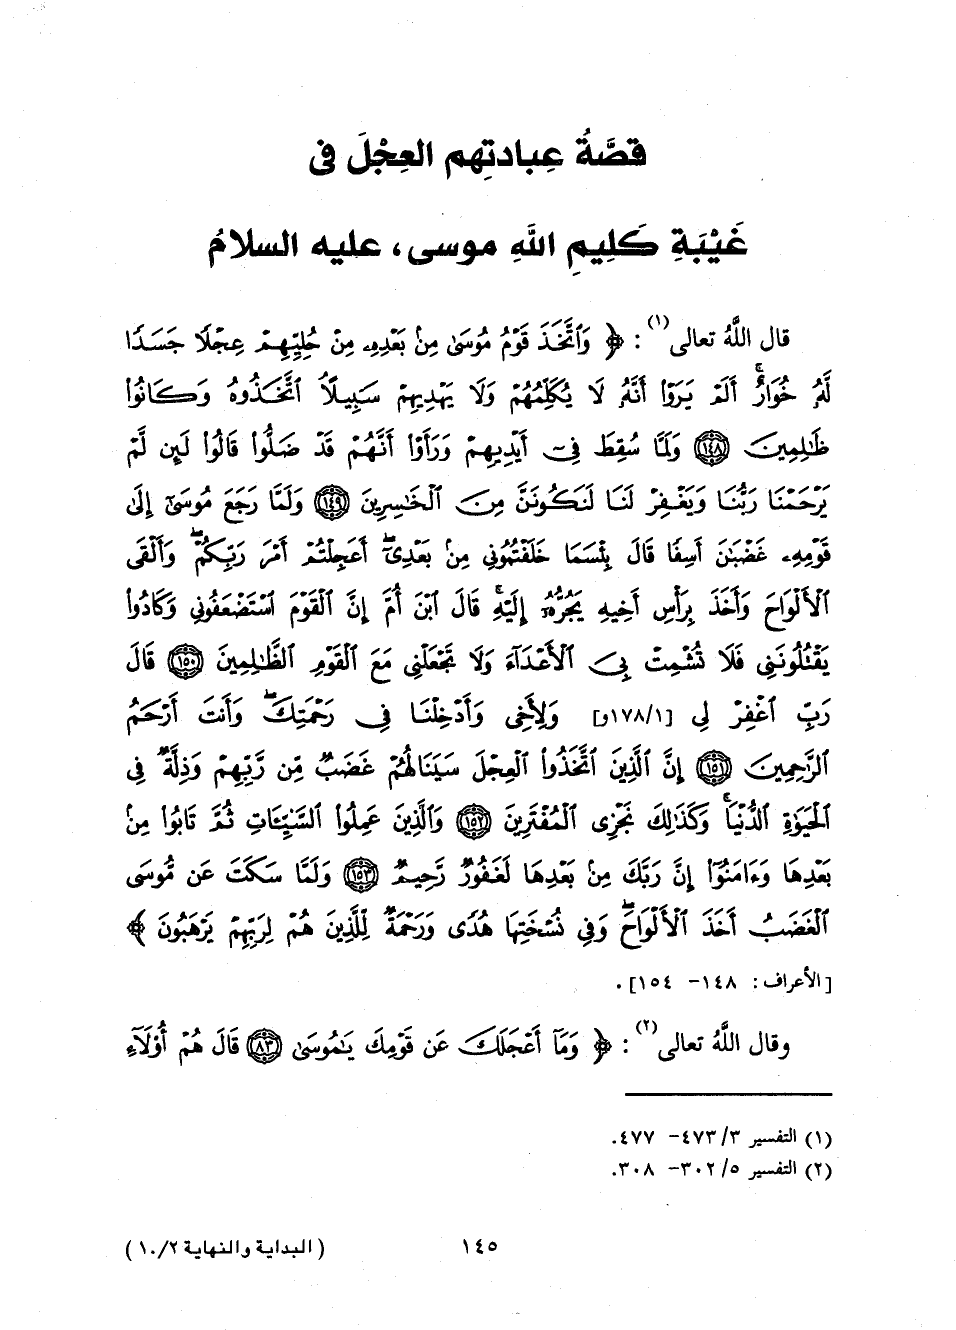 قصَّةُ عِبادتِهم العِجْلَ فى
غَيْبَةِ كَلِيمِ اللَّهِ موسى، عليه السلامُ
قال اللَّهُ تعالى(١): ﴿ وَاتَّخَذَ قَوْمُ مُوسَىٰ مِنۢ بَعْدِهِۦ مِنْ حُلِيِّهِمْ عِجْلًا جَسَدًا
لَّهُۥ خُوَارٌ ۚ أَلَمْ يَرَوْا أَنَّهُۥ لَا يُكَلِّمُهُمْ وَلَا يَهْدِيهِمْ سَبِيلًا ۘ اتَّخَذُوهُ وَكَانُوا
ظَٰلِمِينَ ﴿١٤٨﴾ وَلَمَّا سُقِطَ فِىٓ أَيْدِيهِمْ وَرَأَوْا أَنَّهُمْ قَدْ ضَلُّوا قَالُوا لَئِن لَّمْ
يَرْحَمْنَا رَبُّنَا وَيَغْفِرْ لَنَا لَنَكُونَنَّ مِنَ الْخَٰسِرِينَ ﴿١٤٩﴾ وَلَمَّا رَجَعَ مُوسَىٰٓ إِلَىٰ
قَوْمِهِۦ غَضْبَٰنَ أَسِفًا قَالَ بِئْسَمَا خَلَفْتُمُونِى مِنۢ بَعْدِىٓ ۖ أَعَجِلْتُمْ أَمْرَ رَبِّكُمْ ۖ وَأَلْقَى
الْأَلْوَاحَ وَأَخَذَ بِرَأْسِ أَخِيهِ يَجُرُّهُۥٓ إِلَيْهِ ۚ قَالَ ابْنَ أُمَّ إِنَّ الْقَوْمَ اسْتَضْعَفُونِى وَكَادُوا
يَقْتُلُونَنِى فَلَا تُشْمِتْ بِىَ الْأَعْدَآءَ وَلَا تَجْعَلْنِى مَعَ الْقَوْمِ الظَّٰلِمِينَ ﴿١٥٠﴾ قَالَ
رَبِّ اغْفِرْ لِى [١/١٧٨و] وَلِأَخِى وَأَدْخِلْنَا فِى رَحْمَتِكَ ۖ وَأَنتَ أَرْحَمُ
الرَّٰحِمِينَ ﴿١٥١﴾ إِنَّ الَّذِينَ اتَّخَذُوا الْعِجْلَ سَيَنَالُهُمْ غَضَبٌ مِّن رَّبِّهِمْ وَذِلَّةٌ فِى
الْحَيَوٰةِ الدُّنْيَا ۚ وَكَذَٰلِكَ نَجْزِى الْمُفْتَرِينَ ﴿١٥٢﴾ وَالَّذِينَ عَمِلُوا السَّيِّـَٔاتِ ثُمَّ تَابُوا مِنۢ
بَعْدِهَا وَءَامَنُوٓا إِنَّ رَبَّكَ مِنۢ بَعْدِهَا لَغَفُورٌ رَّحِيمٌ ﴿١٥٣﴾ وَلَمَّا سَكَتَ عَن مُّوسَى
الْغَضَبُ أَخَذَ الْأَلْوَاحَ ۖ وَفِى نُسْخَتِهَا هُدًى وَرَحْمَةٌ لِّلَّذِينَ هُمْ لِرَبِّهِمْ يَرْهَبُونَ ﴾
[الأعراف: ١٤٨- ١٥٤].
وقال اللَّهُ تعالى(٢): ﴿ وَمَآ أَعْجَلَكَ عَن قَوْمِكَ يَٰمُوسَىٰ ﴿٨٣﴾ قَالَ هُمْ أُو۟لَآءِ
(١) التفسير ٣/ ٤٧٣- ٤٧٧.
(٢) التفسير ٥/ ٣٠٢- ٣٠٨.
١٤٥
(البداية والنهاية ١٠/٢)